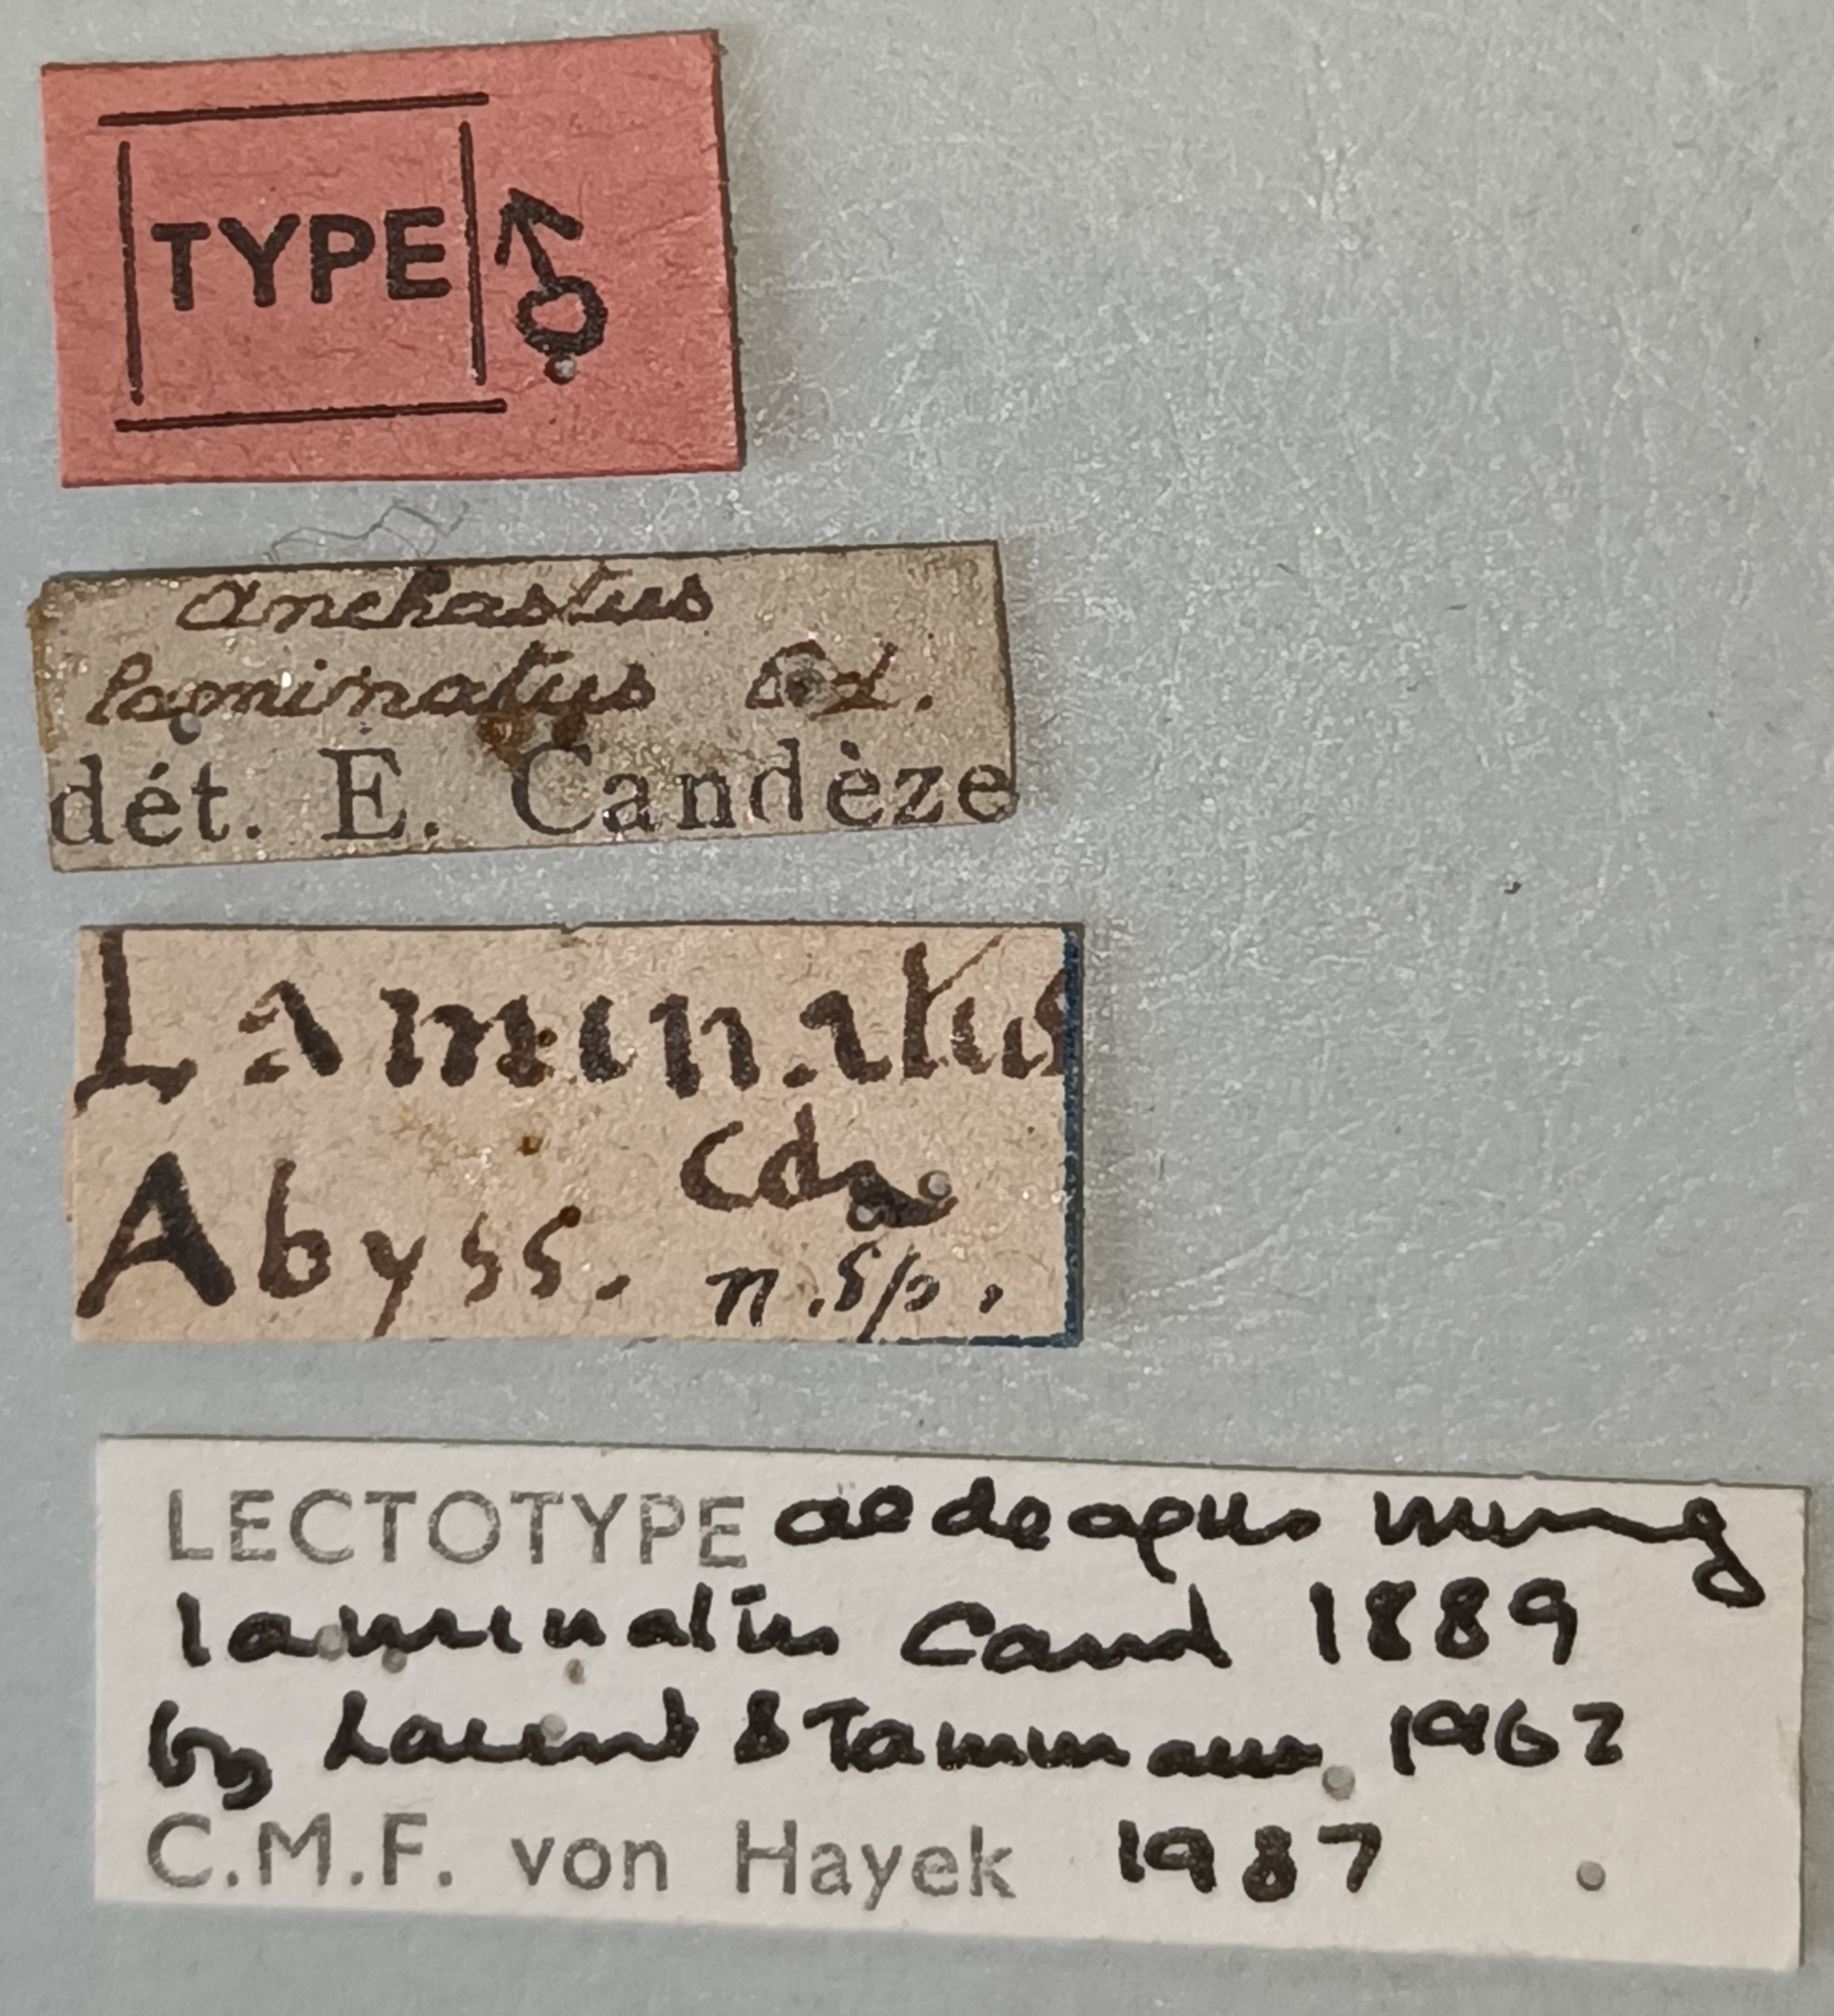 TYPE ♂
Anchastus
laminatus Cd.
dét. E. Candèze
Laminatus
Cdz
Abyss. n.sp.
LECTOTYPE aedeagus missing
laminatus Cand 1889
by Laurent & Tammaus 1962
C.M.F. von Hayek 1987